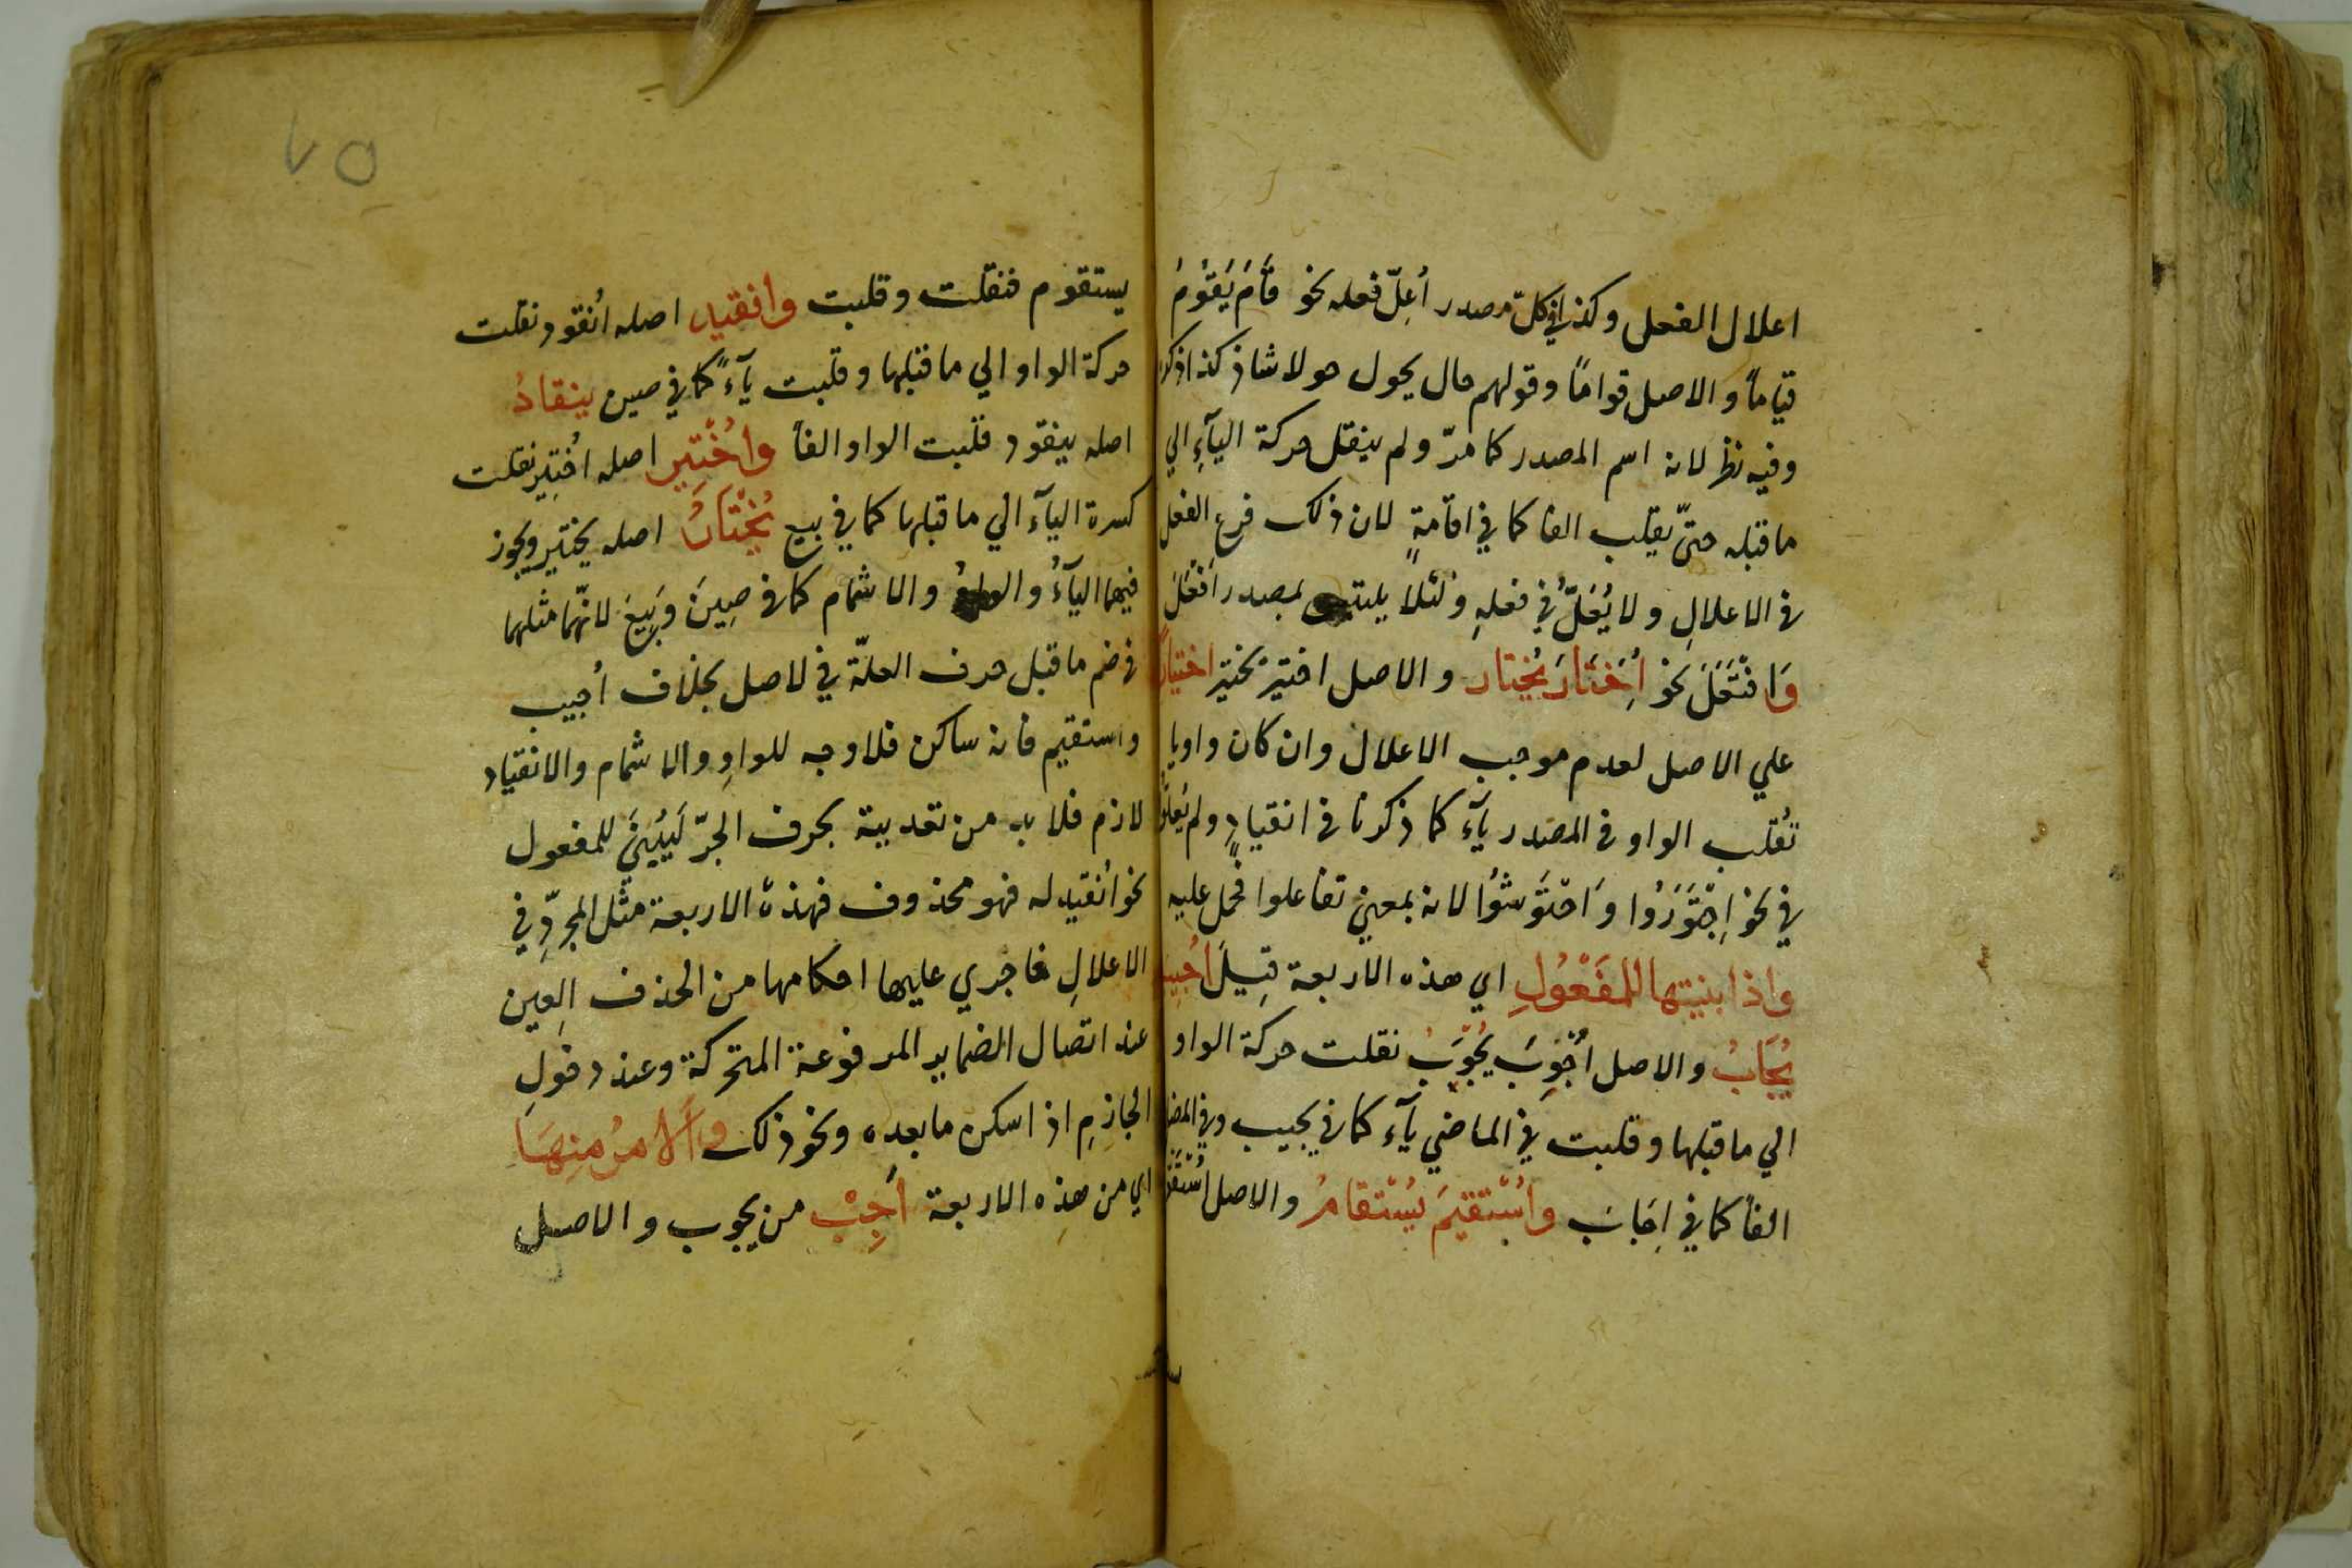 اعلال الفعل وكذا في كلّ مصدر أُعِلّ فعله نحو قَامَ يَقُوْمُ
قيّاماً والاصل قوامًا وقولهم حال يحول حولا شاذ كذا ذكر
وفيه نظر لانه اسم المصدر كما مرّ ولم ينقل حركة اليآءِ الي
ما قبله حتىّ يقلب الفا كما في اقامةٍ لان ذلك فرع الفعل
في الاعلالِ ولا يُعَلُّ في فعلهِ ولئلا يلتبس بمصدر اَفْعَلَ
وَافْتَعَلَ نحو اُخِتَارَ يُختار والاصل اختير يختير اختيارً
علي الاصل لعدم موجب الاعلال وان كان واويا
تُقلب الواو في المصدر يآء كما ذكرنا في انقيادٍ ولم يُعلّوا
في نحو اِجْتَوَرُوا وَاحْتَوَشُوا لانه بمعني تفاعلوا فحمل عليه
واذا بنيتها للمَفْعُولِ اي هذه الاربعة قيلَ اُجيب
يُجَابُ والاصل اُجْوِبَ يُجْوَبُ نقلت حركة الواو
الي ما قبلها وقلبت في الماضي يآء كما في يجيب وفي المضا
الفاً كما في اِجَابَ واُسْتقيَم يُسْتقامُ والاصل اُسْتَقْو
يستقوم فنقلت وقلبت وانقيد اصله اُنقود نقلت
حركة الواو الي ما قبلها وقلبت يآءً كما في صين ينقادُ
اصله ينقود قلبت الواو الفاً واُخْتِير اصله اُختِير نقلت
كسرة اليآء الي ما قبلها كما في بيع يُخْتَارُ اصله يختير ويجوز
فيهما اليآءُ والواوُ والاشمام كما في صِينَ وَبِيعَ لانّهما مثلهما
في ضم ما قبل حرف العلّة في لاصل بخلاف اُجيب
واستقيم فانه ساكن فلا وجه للواوِ والاشمام والانقياد
لازم فلا بد من تعدبية بحرف الجرّ لَيُبْنَيَ للمفعول
نحو اُنقيد له فهو محذوف فهذه الاربعة مثل المجرّدِ في
الاعلالِ فاجري عليها احكامها من الحذف العين
عند اتصال الضماير المرفوعة المتحركة وعند دخولِ
الجازمِ اذ اسكن ما بعده ونحو ذلك وَالامرُ منِهَا
اي من هذِه الاربعة اَجِبْ من يجوب والاصل
٧٥